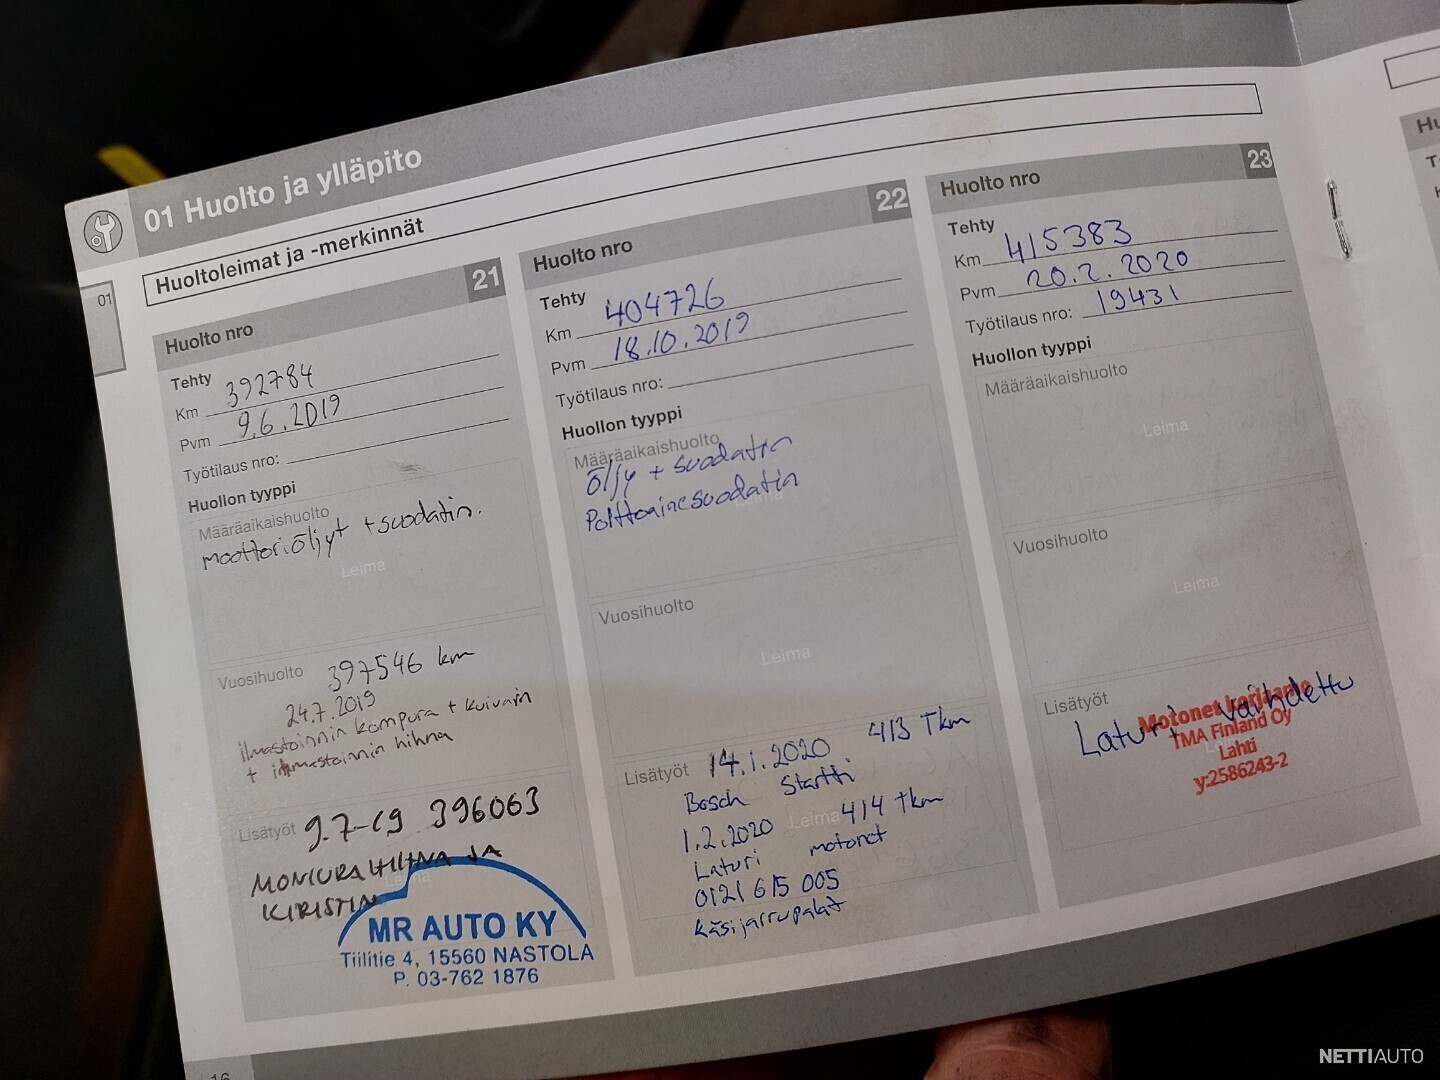 01 Huolto ja ylläpito
Huoltoleimat ja -merkinnät
01
Huolto nro 21
Tehty
Km 392784
Pvm 9.6.2019
Työtilaus nro:
Huollon tyyppi
Määräaikaishuolto
moottoriöljyt + suodatin.
Leima
Vuosihuolto 397546 km
24.7.2019
ilmastoinnin kompura + kuivain
+ ilmastoinnin hihna
Lisätyöt 9.7-19 396063
MONIURAHIHNA JA
KIRISTIN
MR AUTO KY
Tiilitie 4, 15560 NASTOLA
P. 03-762 1876
Huolto nro 22
Tehty
Km 404726
Pvm 18.10.2019
Työtilaus nro:
Huollon tyyppi
Määräaikaishuolto
öljy + suodatin
Polttoainesuodatin
Vuosihuolto
Leima
Lisätyöt 14.1.2020 413 Tkm
Bosch Startti
1.2.2020 Leima 414 Tkm
Laturi motonet
0121 615 005
käsijarrupalat
Huolto nro 23
Tehty
Km 415383
Pvm 20.2.2020
Työtilaus nro: 19431
Huollon tyyppi
Määräaikaishuolto
Leima
Vuosihuolto
Leima
Lisätyöt
Laturi vaihdettu
Motonet korjaamo
TMA Finland Oy
Lahti
y:2586243-2
16
NETTIAUTO